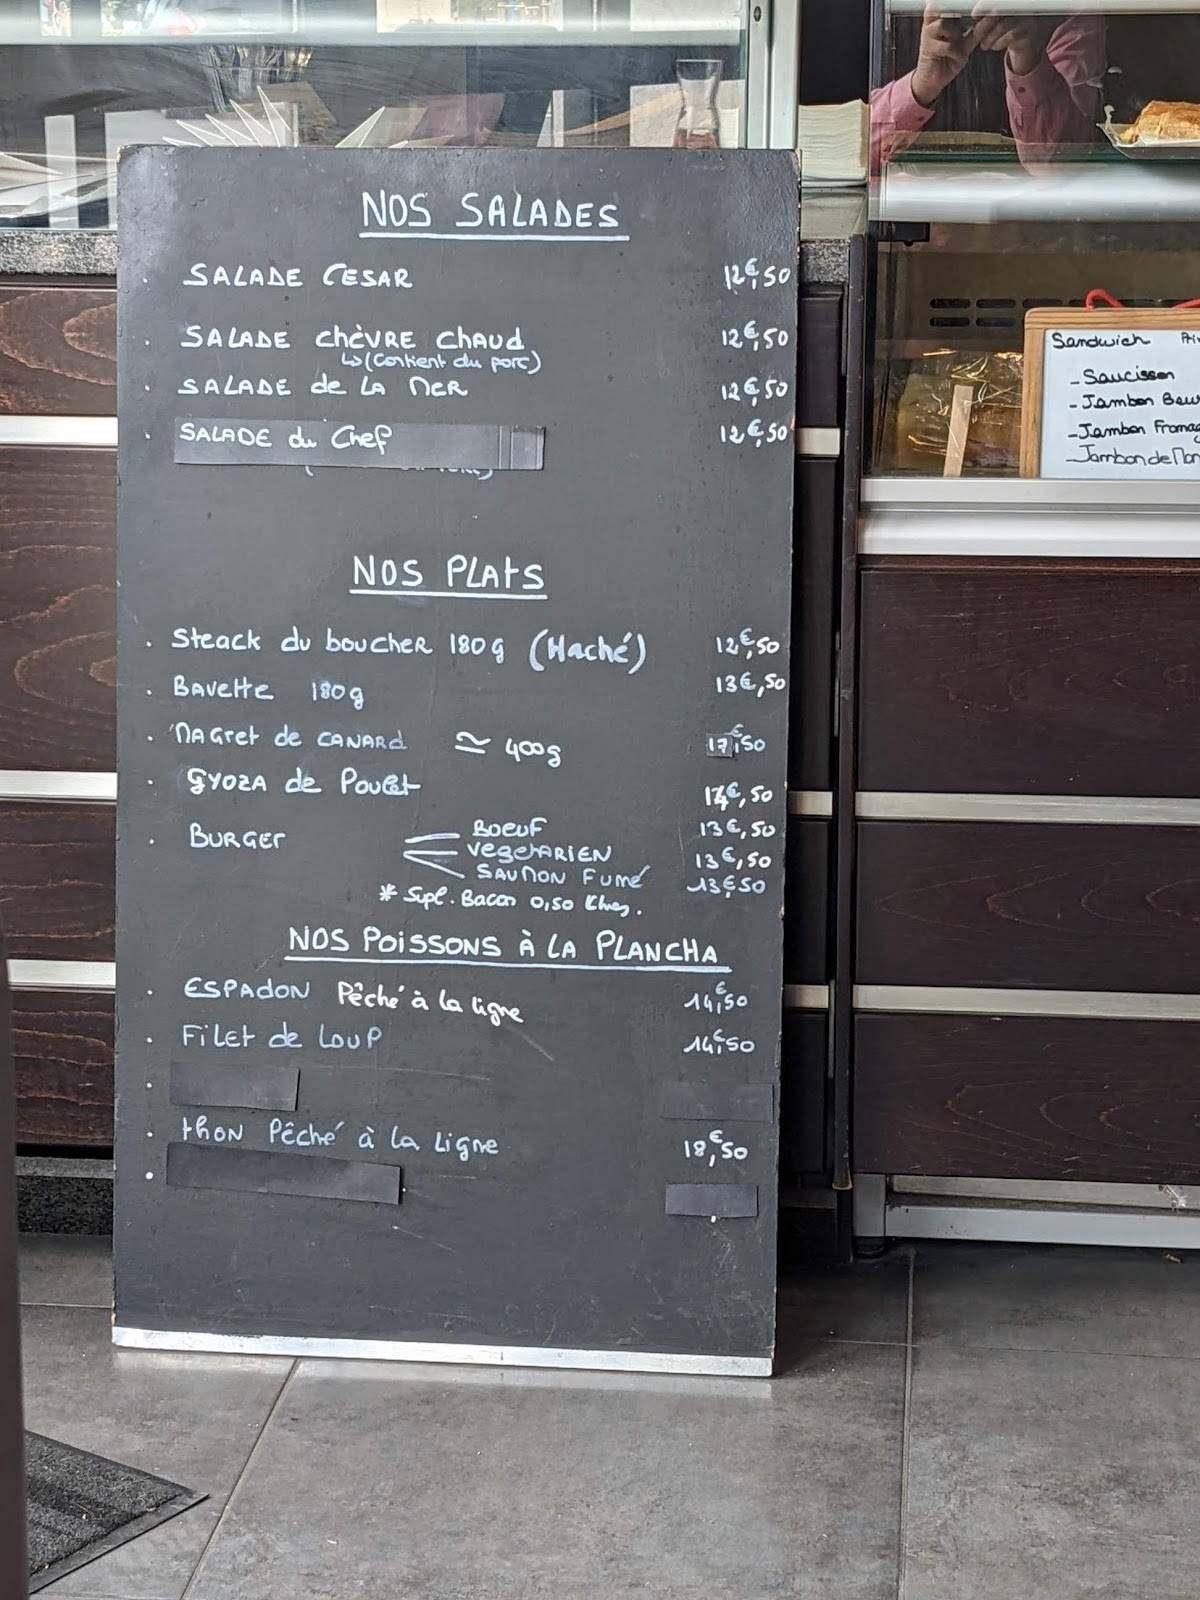 NOS SALADES
. SALADE CESAR 12€,50
. SALADE chèvre chaud 12€,50
↳ (Contient du porc)
. SALADE de LA MER 12€,50
. SALADE du Chef 12€,50
NOS PLATS
. Steack du boucher 180g (Haché) 12€,50
. Bavette 180g 13€,50
. Magret de CANARD ≃ 400g 17€,50
. GYOZA de Poulet 14€,50
. BURGER BOEUF 13€,50
VegetARIEN 13€,50
SAUMON Fumé 13€50
* Supl. Bacon 0,50
NOS POISSONS À LA PLANCHA
. ESPADON Pêché à la ligne 14€,50
. Filet de Loup 14€,50
.
. thon Pêché à la Ligne 18€,50
.
Sandwich Pri
- Saucisson
- Jambon Beur
- Jambon Fromag
- Jambon de Mon